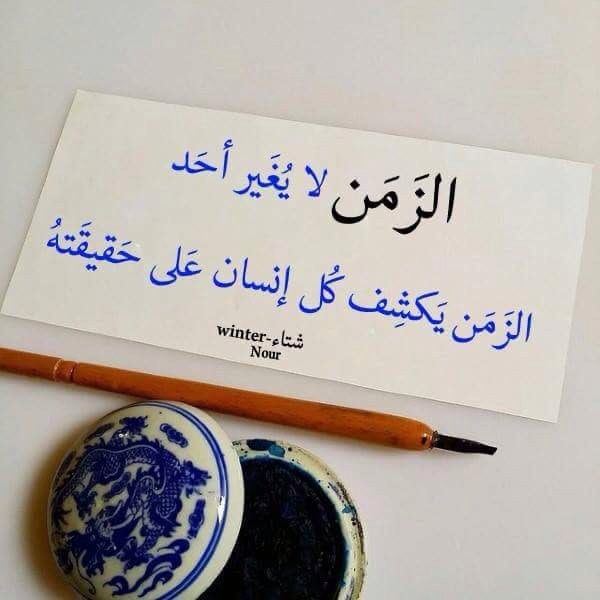 الزَمَن لا يُغَير أحَد
الزَمَن يَكشِف كُل إنسان عَلى حَقيقَتهُ
شتاء-winter
Nour